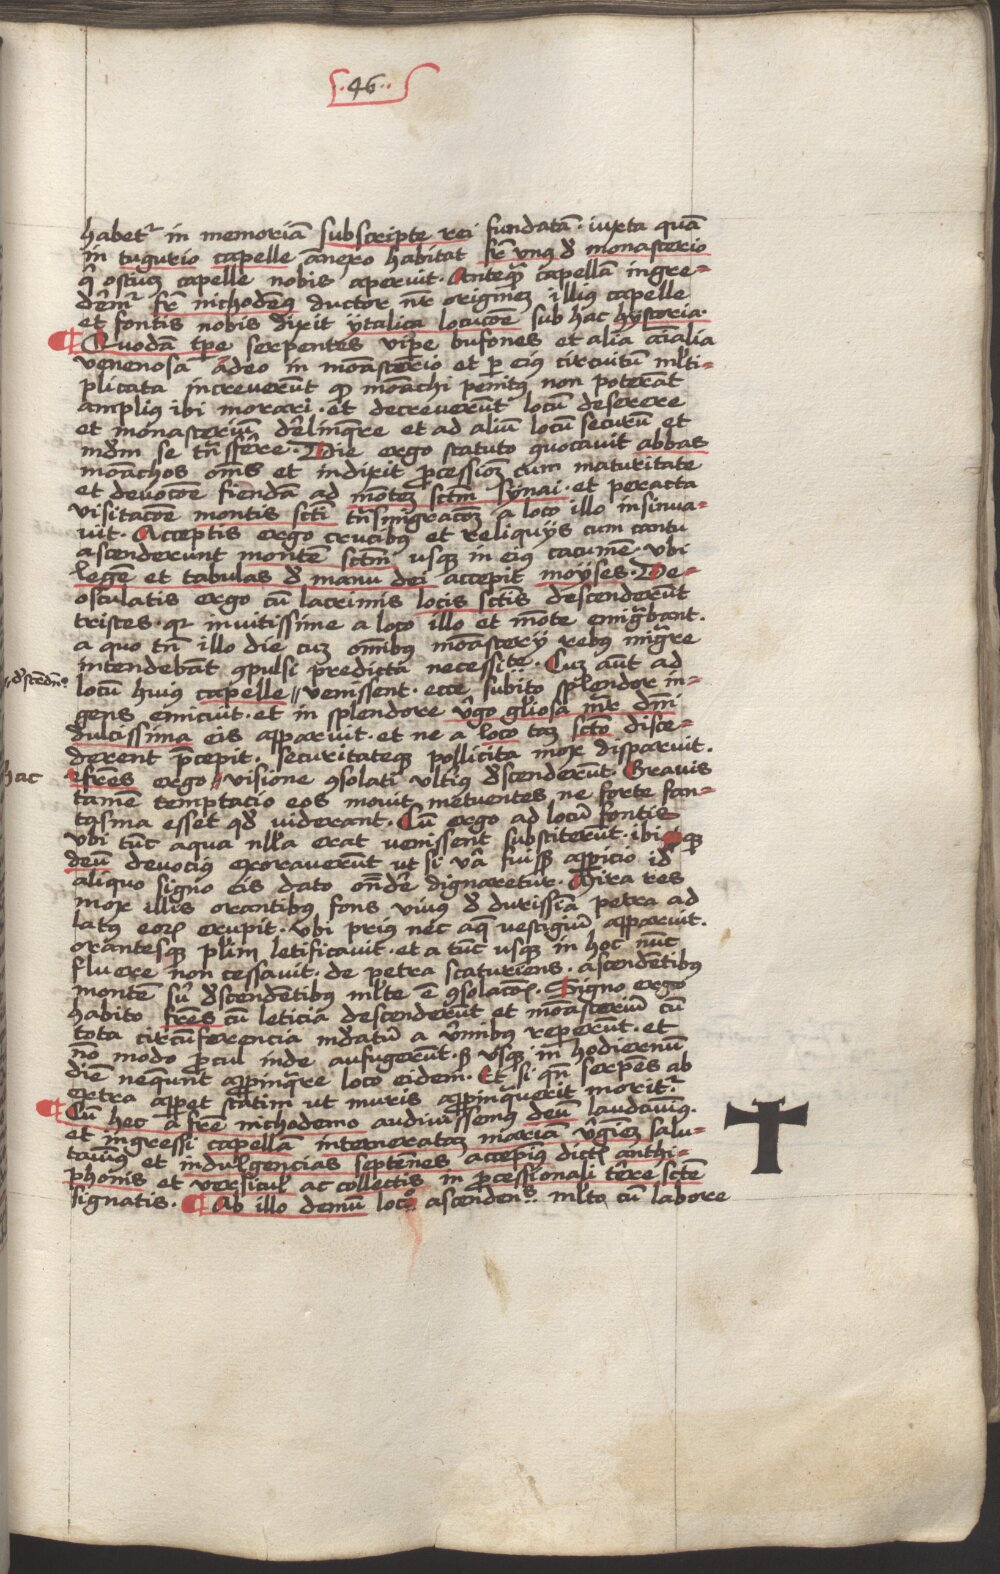 ·46··
habet᷑ in memoriā subscripte rei fundatā · iuxta quā
in tugurio capelle annexo habitat fr̄ vnꝰ d̄ monasterio
q̄ ostiuꝫ capelle nobis aperuit · Anteqᷓ capellā ingre⸗
dēmᷣ fr̄ nichodēꝰ ductor nr̄ origineꝫ illiꝰ capelle
et fontis nobis dixit ÿtalica locucōe sub hac hystoria·
¶ Quodā tp̄e serpentes vip̄e bufones et alia aīalia
venenosa adeo in monasterio et ꝑ eiꝰ circuitū ml̄ti⸗
plicata increverūt qđ monachi penitꝰ non poterāt
ampliꝰ ibi morari · et decreverūt locū deserere
et monasteriū dēlinqᷓre et ad aliū locū securū et
mūdm se tn̄sfēre · Die ergo statuto quocauit abbas
monachos om̄s et indixit ꝓcessioꝫ cum maturitate
et devocōe fiendā ad mōteꝫ sctm̄ Synai · et peracta
visitacōe montis scti tn̄smigracōꝫ a loco illo insinua⸗
uit · Acceptis ergo crucibꝰ et reliquÿs cum cantu
ascenderunt montē sctm̄ usqꝫ in eiꝰ cacumē · vbi
legē et tabulas d̄ manu dei accepit moÿses · De⸗
osculatis ergo cū lacrimis locis sctis descenderūt
tristes · qr̄ invitissime a loco illo et mōte emigᷓbant ·
a quo tn̄ illo die cuꝫ om̄ibus monasterÿ rebus migᷓre
intendebāt ꝯpulsi predicta necessitate · Cuꝫ aūt ad
〃 d̄scendn̄º
locū huiꝰ capelle 〃 venissent · ecce subito splendor in⸗
gens emicuit · et in splendore v̄go gl̄iosa mr̄ dn̄i
dulcissima eis apparuit · et ne a loco taꝫ scto disce⸗
derent p̄cepit · securitateqꝫ pollicita mox disparuit ·
hac
fr̄es ergo 〃 visione ꝯsolati vltiꝰ d̄scenderūt · Gravis
tamē temptacio eos movit metuentes ne forte fan⸗
tasma esset qđ viderant · Cū ergo ad locū fontis
vbi tūc aqua nl̄la erat venissent substiterūt · ibi qꝫ
deū devociꝰ exoraverūt ut si v̄a fuissꝫ apparicio id̄
aliquo signo eis dato ondē dignaretur · Mira res
mox illis orantibꝰ fons viuus d̄ durissīa petra ad
latꝰ eoꝝ erupit · vbi priꝰ nec aq̄ vestigiū apparuit ·
orantesqꝫ pl̄im letificauit · et a tūc usqꝫ in hoc nūc
fluere non cessauit · de petra scaturiens · ascendētibꝰ
montē sū d̄scendētibꝰ ml̄te ē ꝯsolacōꝫ · Signo ergo
habito fr̄es cū leticia descenderūt et monasteriū cū
tota circūferencia mūdatū a v̄mibus reperūt · et
nō modo ꝓcul inde aufugerūt · sꝫ vsqꝫ in hodiernū
diē neqᷓunt appīnqᷓre loco eidem · Et si qn̄ serpēs ab
extra apparet statim ut muris appinquerit moritᷣ ·
¶ Cū hec a fr̄e nichodemo audiuissemꝰ deū laudauimꝰ ·
et ingressi capellā intemerataꝫ mariā v̄gieꝫ salu⸗
tauimꝰ et indulgencias septēnes accepimꝰ dictis anthi⸗
phonis et versicul ac collectis in ꝓcessionali tērre scte
signatis · ¶ Ab illo demū loco ascendens ml̄to cū labore